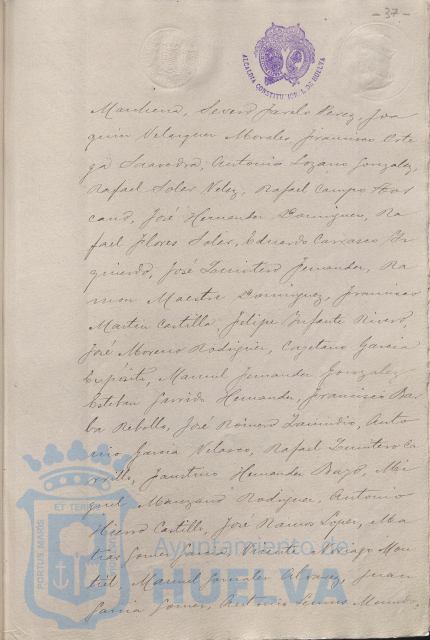 - 37 -
ALCALDIA CONSTITUCIONAL DE HUELVA
Marchena, Severo Jarelo Perez, Joa
quin Velazquez Morales, Francisco Orte
ga Saavedra, Antonio Lozano Gonzalez,
Rafael Soler Velez, Rafael Campo
José Hernandez Dominguez, Ra
fael Flores Soler, Eduardo Carrasco Iz
quierdo, José Quintero Fernandez, Ra
mon Maestre Dominguez, Francisco
Martin Castilla, Felipe Infante Rivero,
José Moreno Rodriguez, Cayetano Garcia
Expósito, Manuel Fernandez Gonzalez,
Esteban Garrido Hernandez, Francisco Bar
ba Rebollo, José Romero, Anto
nio Garcia Velasco, Rafael Quintero Ca
rrillo, Faustino Hernandez Bazo, Mi
guel Manzano Rodriguez, Antonio
Hierro Castilla, José Ramos Lopez, Ma
tias Gomez Garcia, Vicente Mon
tiel, Manuel Gonzalez Alvarez, Juan
Garcia Gomez, Antonio
PORTUS MARIS
ET TERRAE
Ayuntamiento de
HUELVA